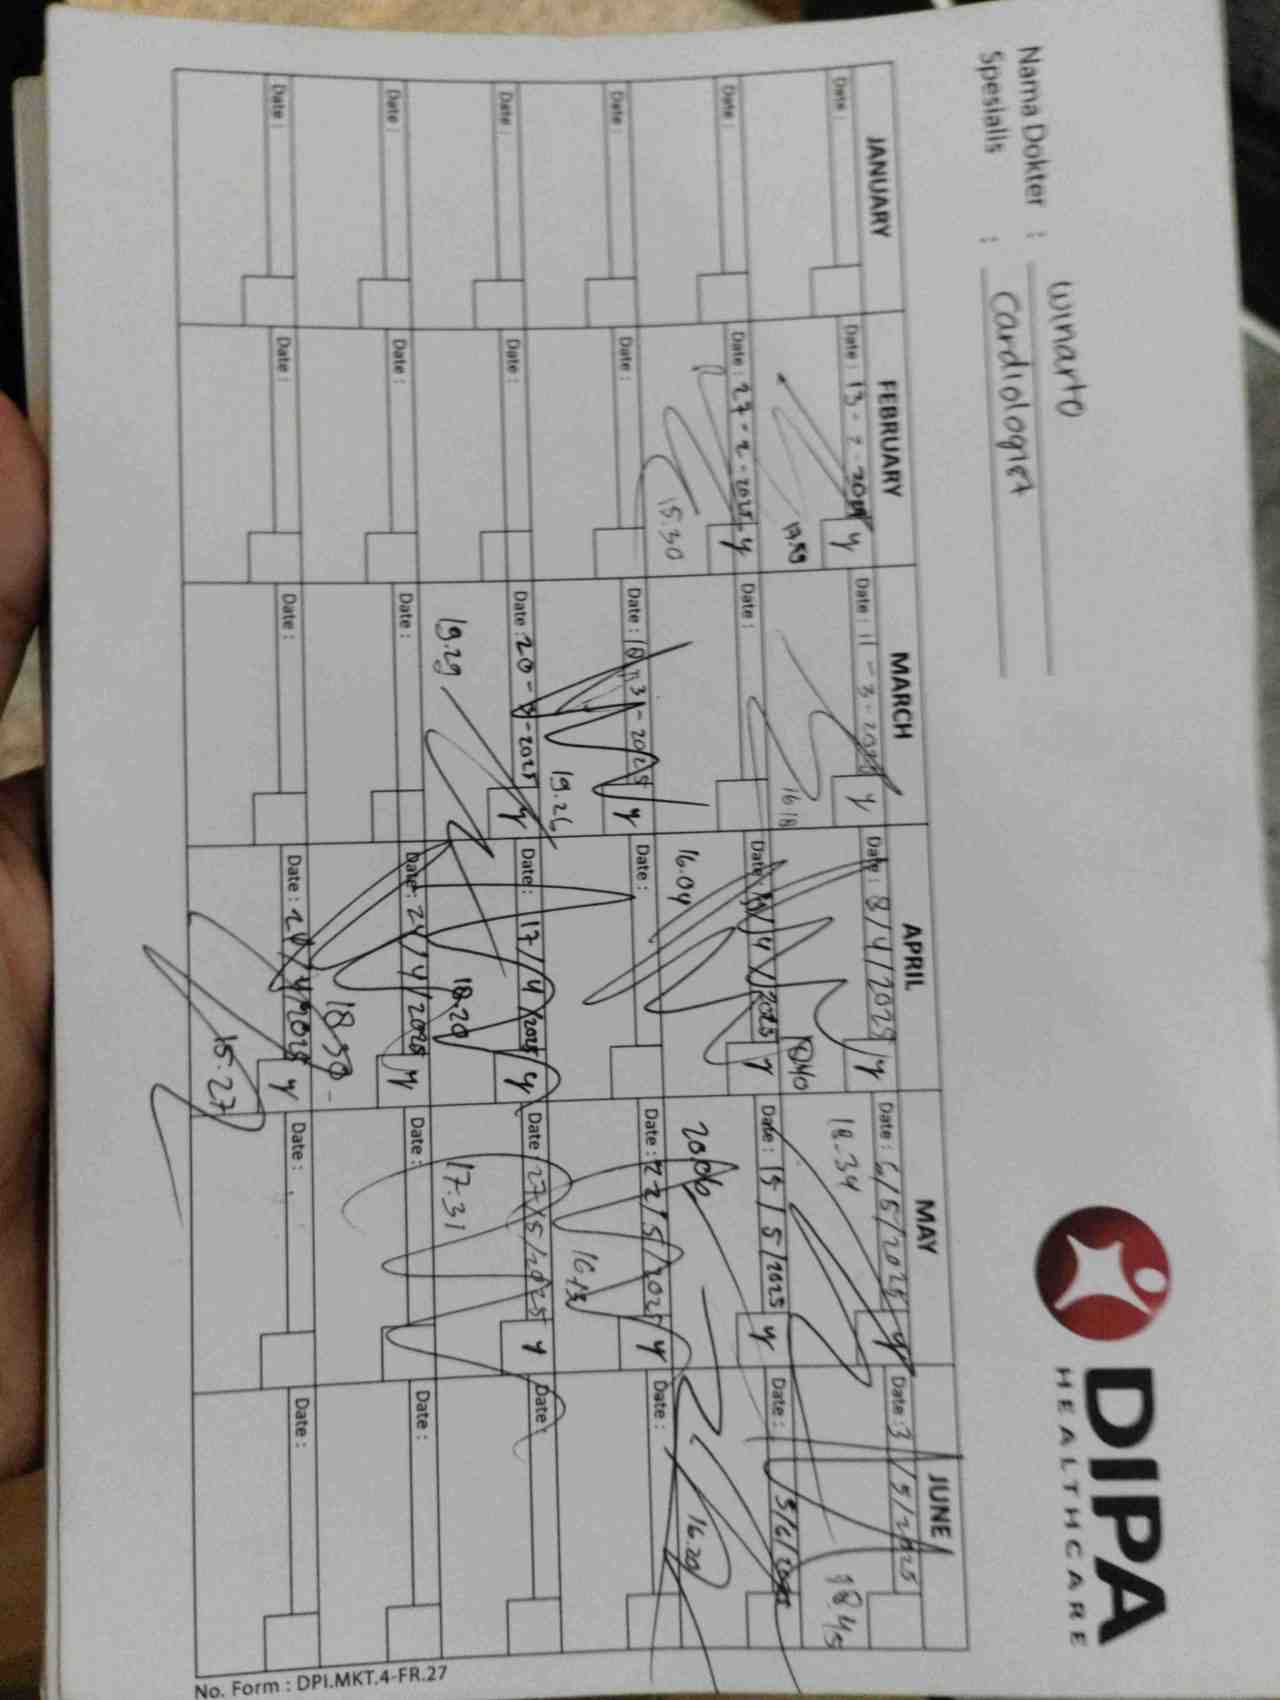 DIPA
HEALTHCARE
Nama Dokter : Winarto
Spesialis : Cardiologist
JANUARY FEBRUARY MARCH APRIL MAY JUNE
Date : Date : 13-2- y Date : 11-3-2025 y Date : 8/4/2025 y Date : 6/5/2025 y Date : 3/5/2025
17.59 16 18 18.40 18.34 18.45
Date : Date : 27-2-2025 y Date : Date : /4/2025 y Date : 15/5/2025 y Date : 5/6/2025
15.30 16.04 20.06 16.29
Date : Date : Date : 18-3-2025 y Date : Date : 22/5/2025 y Date :
19.26 16.13
Date : Date : Date : 20-3-2025 y Date : 17/4/2025 y Date : 27/5/2025 y Date :
19.29 18.20 17.31
Date : Date : Date : Date : 24/4/2025 y Date : Date :
18.50
Date : Date : Date : Date : /4/2025 y Date : Date :
15.27
No. Form : DPI.MKT.4-FR.27